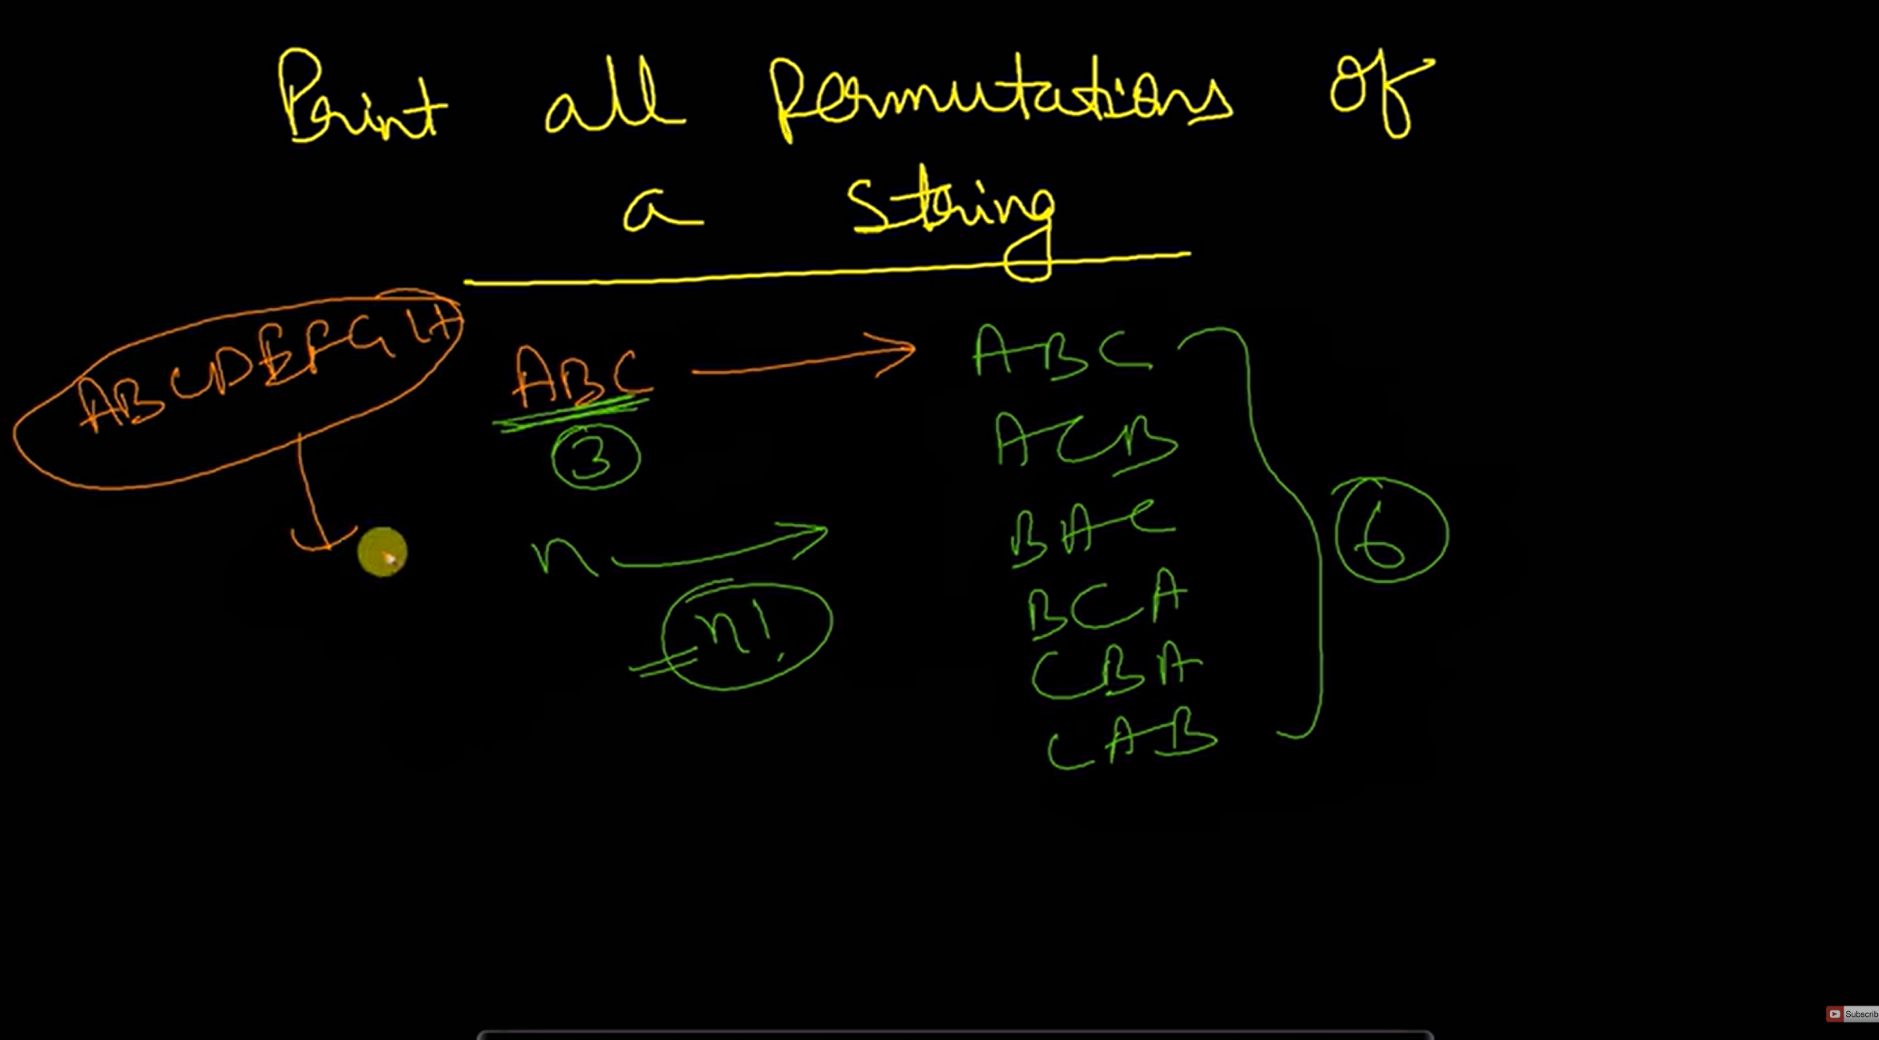 Print all permutations of
a string
ABCDEFGH
ABC
3
n
n!
ABC
ACB
BAC
BCA
CBA
CAB
6
Subscrib